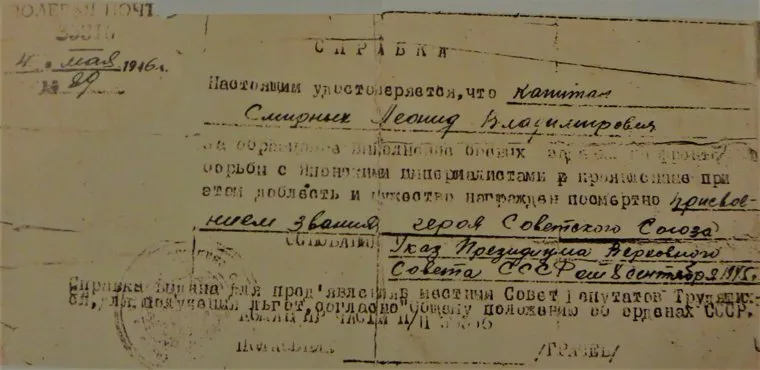 ПОЛЕВАЯ ПОЧТ
4 мая 1946 г.
№ 89
СПРАВКА
Настоящим удостоверяется, что капитан
Смирных Леонид Владимирович
за образцовое выполнение боевых на фронте
борьбы с японскими империалистами и проявленные при
этом доблесть и мужество награжден посмертно присвое-
нием звания героя Советского Союза
ОСНОВАНИЕ Указ Президиума Верховного
Совета СССР от 8 сентября 1945г.
Справка выдана для пред'явления местным Совет Депутатов Трудящих-
ся, для получения льгот, согласно общему положению об орденах СССР.
КОМАНДИР ЧАСТИ П/П
ПОЛКОВНИК